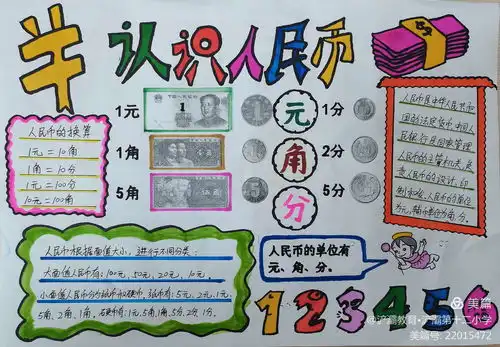 认识人民币
人民币的换算
1元=10角
1角=10分
1元=100分
10元=100角
1元
1角
5角
元
角
分
1分
2分
5分
人民币是中华人民共和
国的法定货币,中国人
民银行是国家管理
人民币的主管机关,负
责人民币的设计、印
制和发行,人民币的单位
为元,
人民币根据面值大小,进行不同分类:
大面值人民币有:100元,50元,20元,10元。
小面值人民币分为纸币和硬币,纸币有:5元,2元,1元,
5角,2角,1角,硬币有:1元,5角,1角,5分,2分,1分。
人民币的单位有
元、角、分。
123456
美篇
@浐灞教育·浐灞第十二小学
美篇号: 22015472